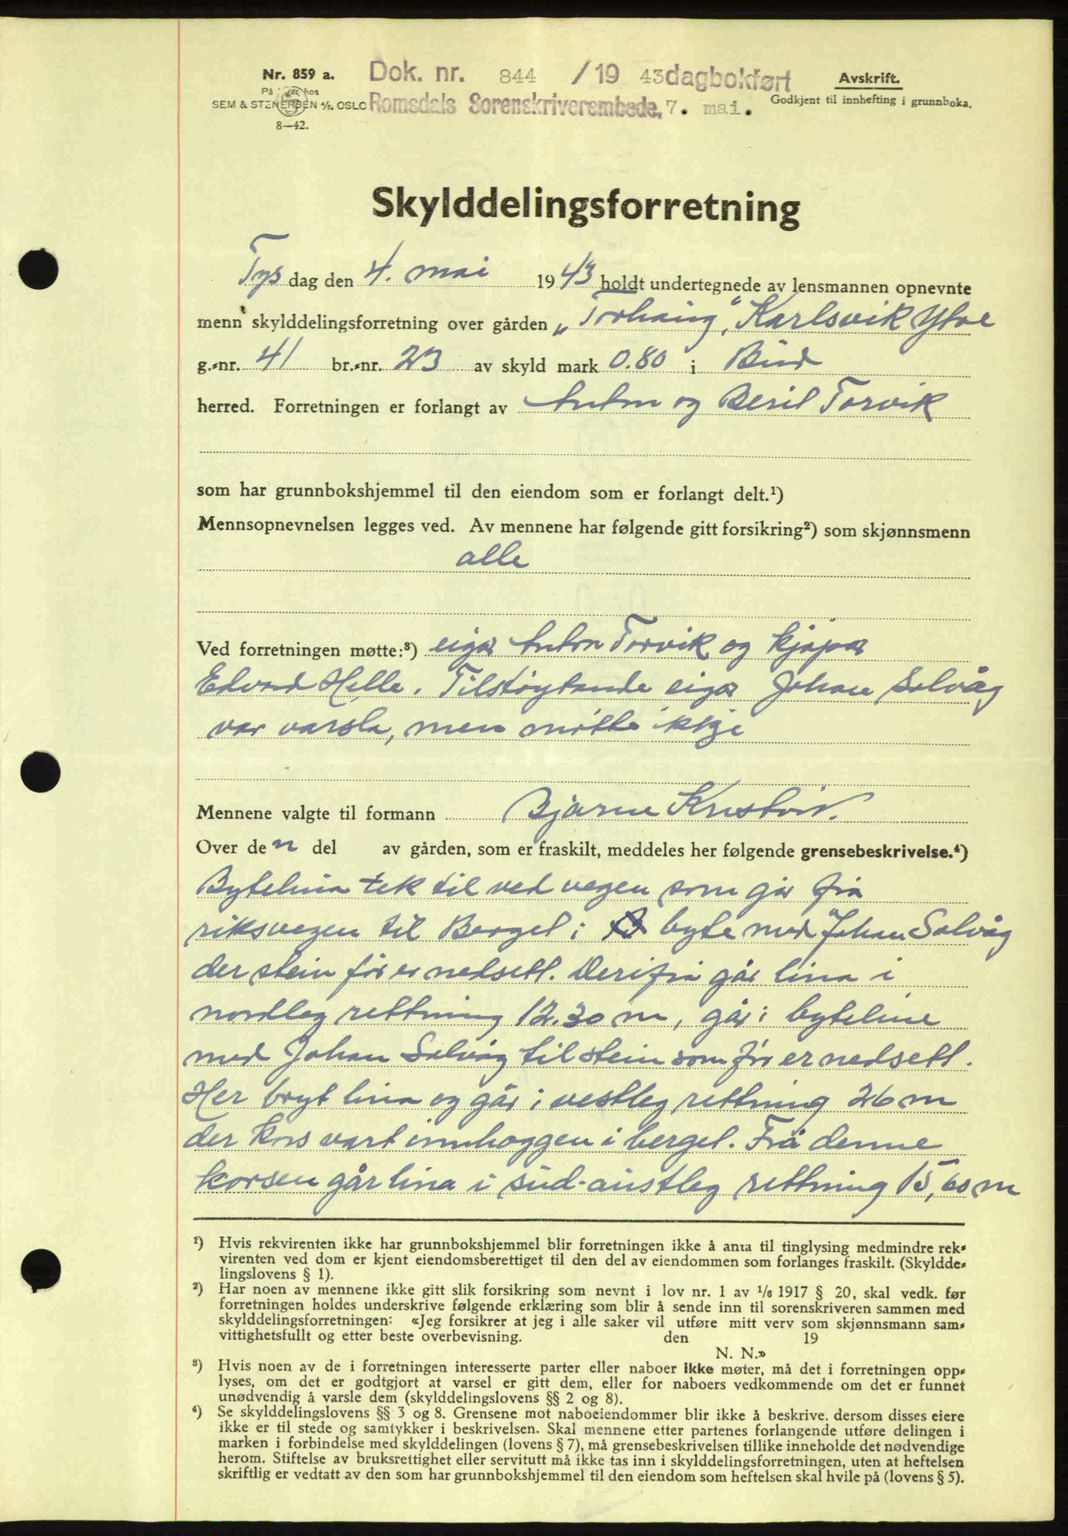 Nr. 859 a.
På lager hos
SEM & STENERSEN A/S, OSLO
8—42.
Dok. nr. 844 /19 43 dagbokført
Romsdals Sorenskriverembede, 7. mai.
Avskrift.
Godkjent til innhefting i grunnboka.
Skylddelingsforretning
Tys dag den 4. mai 1943 holdt undertegnede av lensmannen opnevnte
menn skylddelingsforretning over gården „Torhaug", Karlsvik Ytre
g.-nr. 41 br.-nr. 23 av skyld mark 0.80 i Bud
herred. Forretningen er forlangt av Anton og Beril Torvik
som har grunnbokshjemmel til den eiendom som er forlangt delt.¹)
Mennsopnevnelsen legges ved. Av mennene har følgende gitt forsikring²) som skjønnsmenn
alle
Ved forretningen møtte:³) eigar Anton Torvik og kjøpar
Edvard Helle. Tilstøytande eigar Johan Solvåg
var varsla, men møtte ikkje
Mennene valgte til formann Bjarne
Over den del av gården, som er fraskilt, meddeles her følgende grensebeskrivelse.⁴)
Bytelina tek til ved vegen som går frå
riksvegen til Berget i byte med Johan Solvåg
der stein før er nedsett. Derifrå går lina i
nordleg rettning 12.30 m, går i byteline
med Johan Solvåg til stein som før er nedsett.
Her bryt lina og går i vestleg rettning 26 m
der kors vart innhoggen i berget. Frå denne
korsen går lina i sud-austleg rettning 15,60 m
¹) Hvis rekvirenten ikke har grunnbokshjemmel blir forretningen ikke å anta til tinglysing medmindre rek-
virenten ved dom er kjent eiendomsberettiget til den del av eiendommen som forlanges fraskilt. (Skyldde-
lingslovens § 1).
²) Har noen av mennene ikke gitt slik forsikring som nevnt i lov nr. 1 av 1/6 1917 § 20, skal vedk. før
forretningen holdes underskrive følgende erklæring som blir å sende inn til sorenskriveren sammen med
skylddelingsforretningen: «Jeg forsikrer at jeg i alle saker vil utføre mitt verv som skjønnsmann sam-
vittighetsfullt og etter beste overbevisning. den 19
N. N.»
³) Hvis noen av de i forretningen interesserte parter eller naboer ikke møter, må det i forretningen opp-
lyses, om det er godtgjort at varsel er gitt dem, eller for naboers vedkommende om det er funnet
unødvendig å varsle dem (skylddelingslovens §§ 2 og 8).
⁴) Se skylddelingslovens §§ 3 og 8. Grensene mot naboeiendommer blir ikke å beskrive, dersom disses eiere
ikke er til stede og samtykker i beskrivelsen. Skal mennene etter partenes forlangende utføre delingen i
marken i forbindelse med skylddelingen (lovens § 7), må grensebeskrivelsen tillike inneholde det nødvendige
herom. Stiftelse av bruksrettighet eller servitutt må ikke tas inn i skylddelingsforretningen, uten at heftelsen
skriftlig er vedtatt av den som har grunnbokshjemmel til den eiendom som heftelsen skal hvile på (lovens § 5).